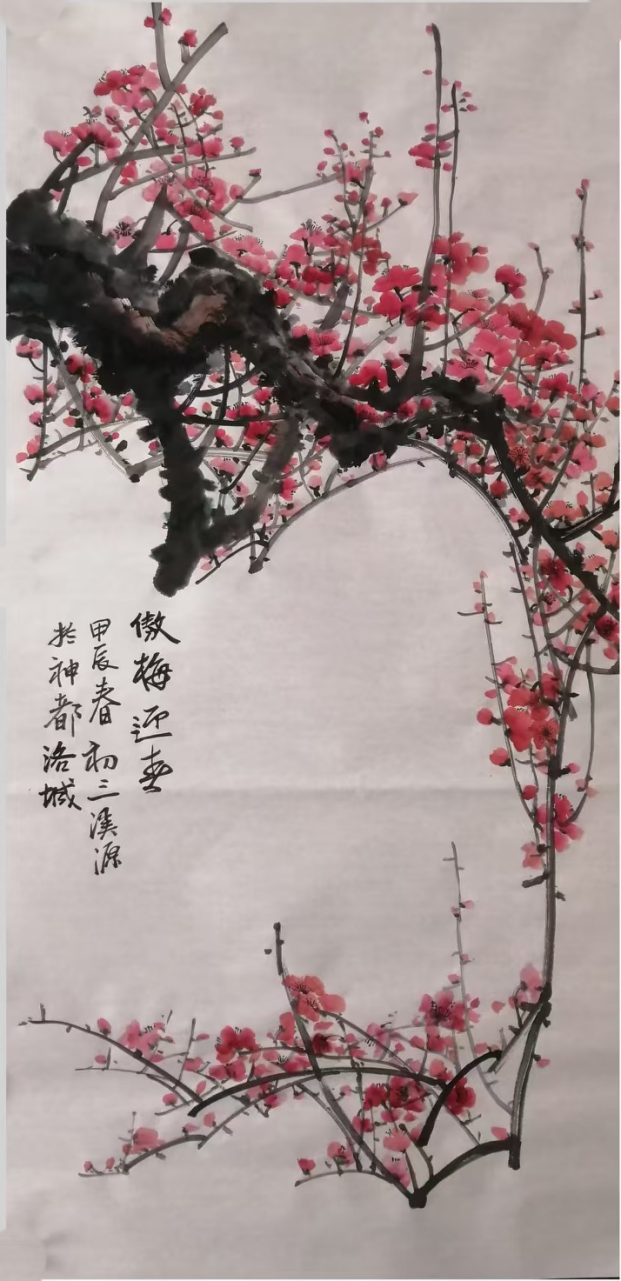 傲梅迎春
甲辰春初三溪源
於神都洛城